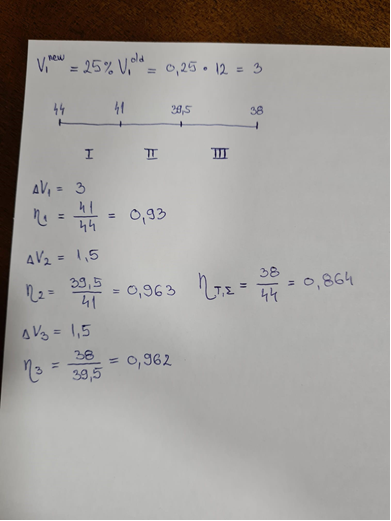 V₁ⁿᵉʷ = 25% V₁ᵒˡᵈ = 0,25 • 12 = 3
44 41 39,5 38
I II III
ΔV₁ = 3
η₁ = 41/44 = 0,93
ΔV₂ = 1,5
η₂ = 39,5/41 = 0,963
η_T,Σ = 38/44 = 0,864
ΔV₃ = 1,5
η₃ = 38/39,5 = 0,962